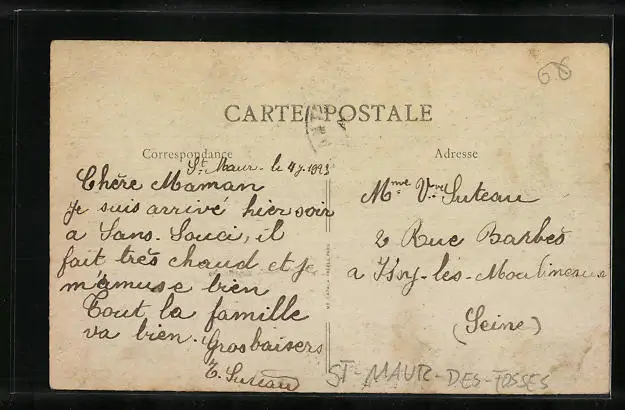 68
CARTE POSTALE
Correspondance
Adresse
St Maur - le 4 7. 1923
Chère Maman
je suis arrivé hier soir
a Sans-Souci, il
fait très chaud et je
m'amuse bien
Tout la famille
va bien. Gros baisers
T. Suteau
Mme Vve Suteau
2 Rue Barbès
a Issy-les-Moulineaux
(Seine)
ST-MAUR-DES-FOSSES